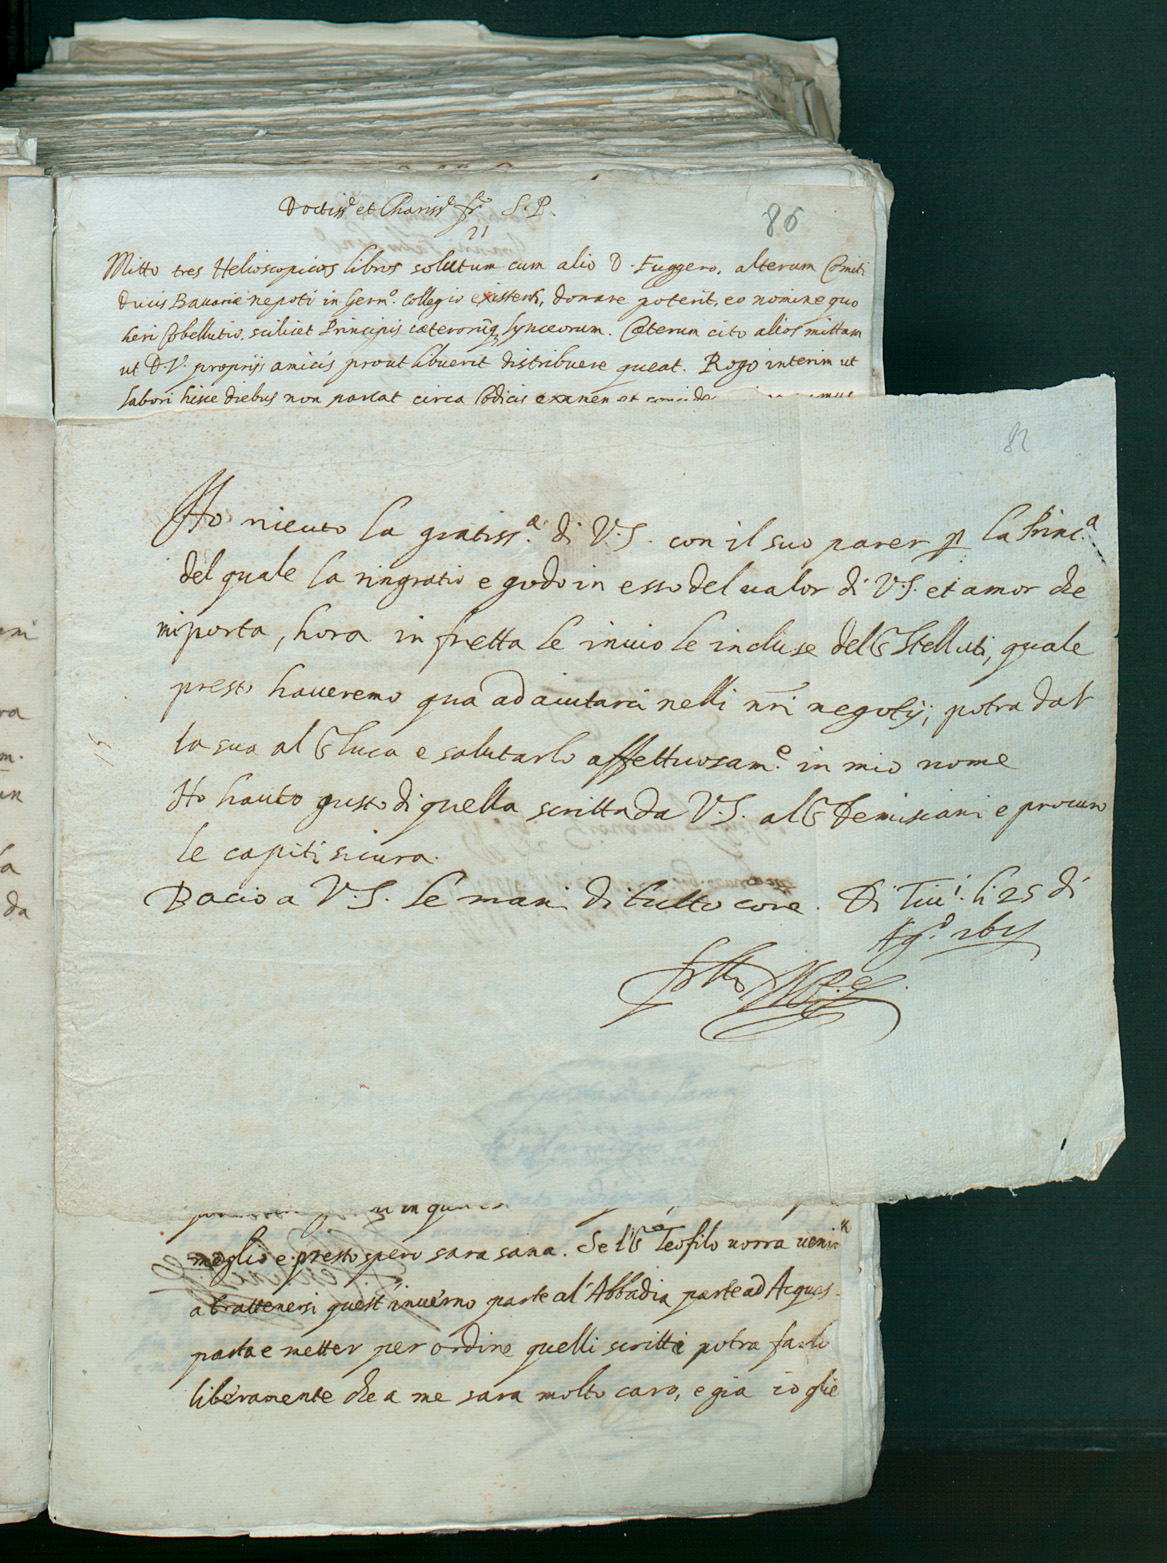 Doctiss.e et Chariss.e fr. S. P.
86
Mitto tres Helioscopicos libros solutum cum alio D. Fuggero, alterum Comiti
Ducis Bavariæ nepoti in Germ.o Collegio existenti, donare poterit, eo nomine quo
heri Cobellutio, scilicet Principis cæterorumq; Lynceorum. Cæterum cito alios mittam
ut D. V. proprijs amicis prout libuerit distribuere queat. Rogo interim ut
labori hisce diebus non parcat circa Codicis examen et
82
Ho riceuto la gratiss.a di V. S. con il suo parer p la Princ.a
del quale la ringratio e godo in esso del ualor di V. S. et amor che
mi porta, hora in fretta le inuio le incluse del S Stelluti, quale
presto haueremo qua ad aiutarci nelli nri negotij; potra dar
la sua al S Luca e salutarlo affettuosam.e in mio nome
Ho hauto gusto di quella scritta da V. S. al S Demisiani e procuro
le capiti sicura.
Bacio a V. S. le mani di tutto core. Di Tiu.i li 25 di
Ag.o
in
meglio e presto spero sara sana. Se l S Teofilo uorra uenir
a trattenersi quest' inuerno parte al' Abbadia parte ad Acquas-
parta e metter per ordine quelli scritti potra farlo
liberamente che a me sara molto caro, e gia io glie